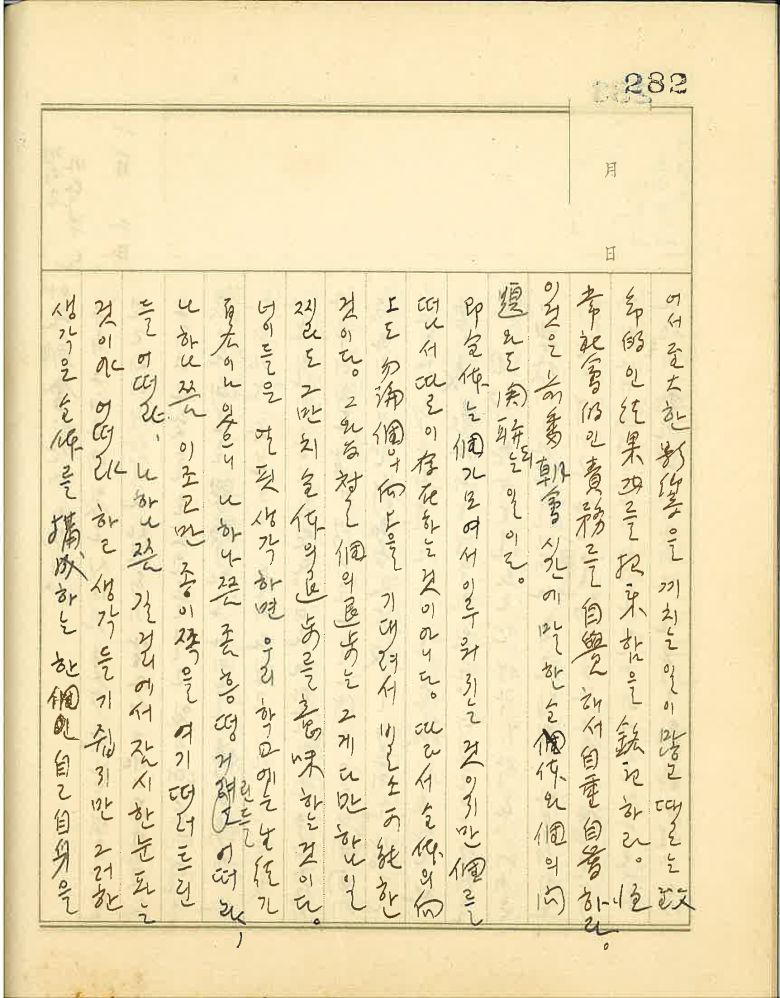 282
月
日
어서 至大한 影響을 끼치는 일이 많고 때로는 致
命的인 結果까지를 招來함을 銘記하라. 恒
常 社會的인 責務를 自覺해서 自重自省하라.
이것은 前番 朝會 시간에 말한 全體와 個의 問
題와도 関聯되는 일일.
即 全体는 個가 모여서 이루워지는 것이지만 個를
떠나서 따로이 存在하는 것이 아니다. 따라서 全体의 向
上도 勿論 個의 向上을 기대려서 비로소 可能한
것이다. 그와 反対로 個의 退步는 그게 다만 하나일
찌라도 그만치 全体의 退步를 意味하는 것이다.
너이들은 얼핏 생각하면 우리 학교에는 生徒가
百名이나 있으니 나 하나쯤 좀 흥떵거린들 어떠랴,
나 하나쯤 이 조고만 종이쪽을 여기 떠러트린
들 어떠랴, 나 하나쯤 길거리에서 잠시 한눈 파는
것이야 어떠랴 하고 생각들기 쉽지만 그러한
생각은 全体를 構成하는 한 個인 自己自身을